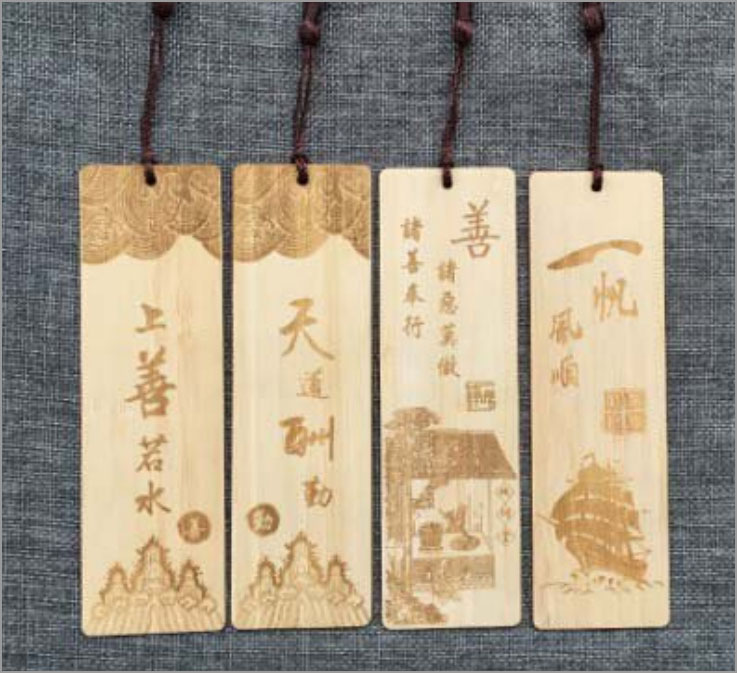 上善若水
善
天道酬勤
勤
善
諸惡莫做
諸善奉行
一帆
風順